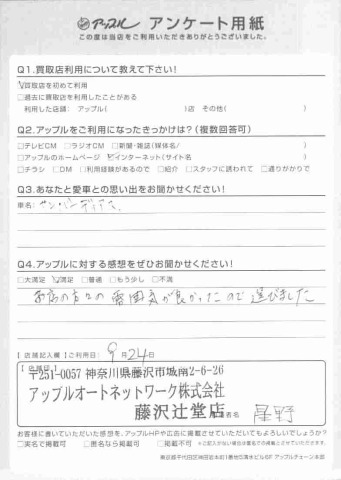 アップル アンケート用紙
この度は当店をご利用いただきありがとうございました。
Q1.買取店利用について教えて下さい!
☑買取店を初めて利用
□過去に買取店を利用したことがある
利用した店頭: アップル( )店 その他( )
Q2.アップルをご利用になったきっかけは?(複数回答可)
□テレビCM □ラジオCM □新聞・雑誌(媒体名/ )
□アップルのホームページ ☑インターネット(サイト名 )
□チラシ □DM □利用経験があるので □紹介 □スタッフに誘われて □通りがかりで
Q3.あなたと愛車との思い出をお聞かせください!
車名:
Q4.アップルに対する感想をぜひお聞かせください!
□大満足 ☑満足 □普通 □もう少し □不満
お店の方々の雰囲気が良かったので選びました
【店舗記入欄】ご利用日: 9月24日
〒251-0057 神奈川県藤沢市城南2-6-26
アップルオートネットワーク株式会社
藤沢辻堂店
者名 星野
お客様に書いていただいた感想を、アップルHPや広告に掲載させていただいてもよろしいでしょうか?
□実名で掲載可 □匿名なら掲載可 □掲載不可 ※ご記入がない場合は匿名での掲載とさせていただきます。